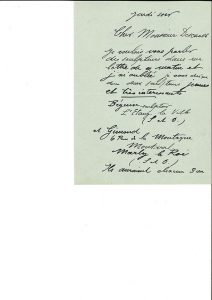 jeudi soir
Cher Monsieur
je voulais vous parler
des sculpteurs dans ma
lettre de ce matin et
j'ai oublié je vous
deux sculpteurs jeunes
et très intéressants
sculpteur
L'Etang la Ville
(S et O)
et
6 Rue de la Montagne
Montval
Marly le Roi
(S et O)
Ils auraient chacun 3